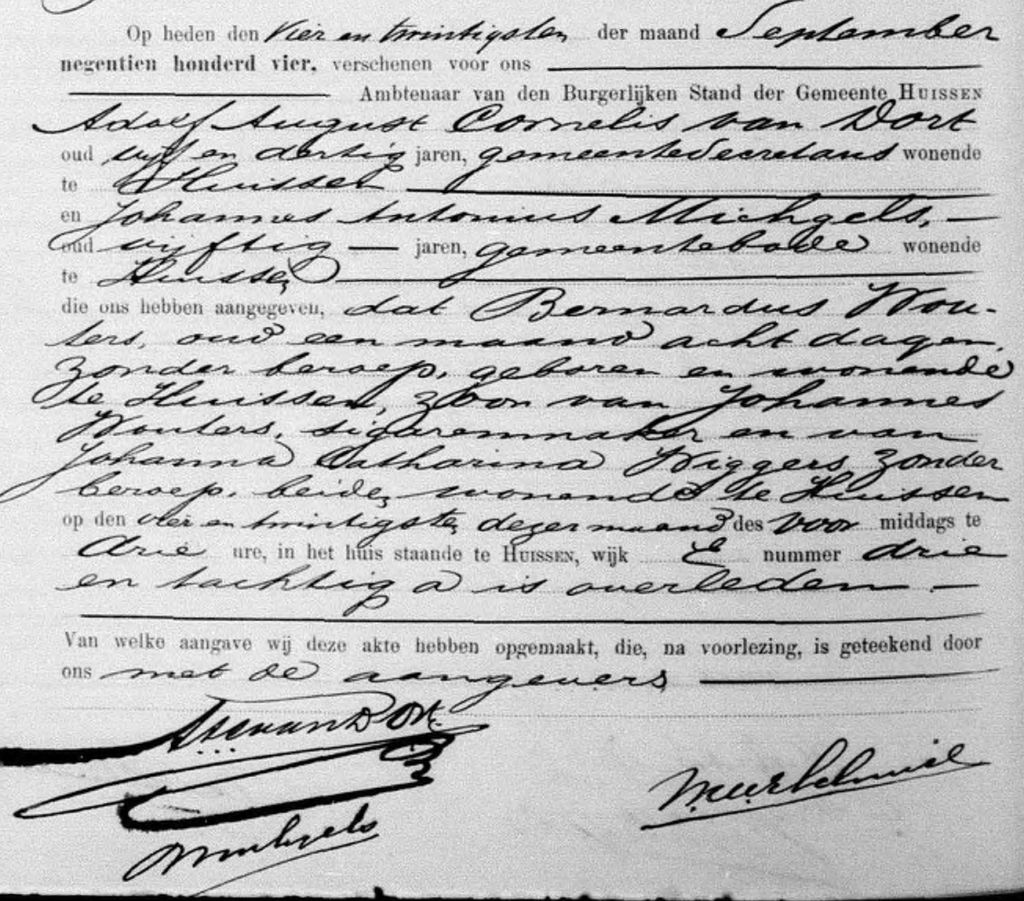 Op heden den Vier en twintigsten der maand September
negentien honderd vier, verschenen voor ons
Ambtenaar van den Burgerlijken Stand der Gemeente HUISSEN
Adolf August Cornelis van Dort
oud vijf en dertig jaren, gemeentesecretaris wonende
te Huissen
en Johannes Antonius Michgels,
oud vijftig jaren, gemeentebode wonende
te Huissen
die ons hebben aangegeven, dat Bernardus Wou-
ters, oud een maand acht dagen,
zonder beroep, geboren en wonende
te Huissen, zoon van Johannes
Wouters, sigarenmaker en van
Johanna Catharina Wiggers, zonder
beroep, beiden wonende te Huissen
op den vier en twintigsten dezer maand des voor middags te
drie ure, in het huis staande te HUISSEN, wijk E nummer drie
en tachtig a is overleden.
Van welke aangave wij deze akte hebben opgemaakt, die, na voorlezing, is geteekend door
ons met de aangevers
van Dort.
Michgels